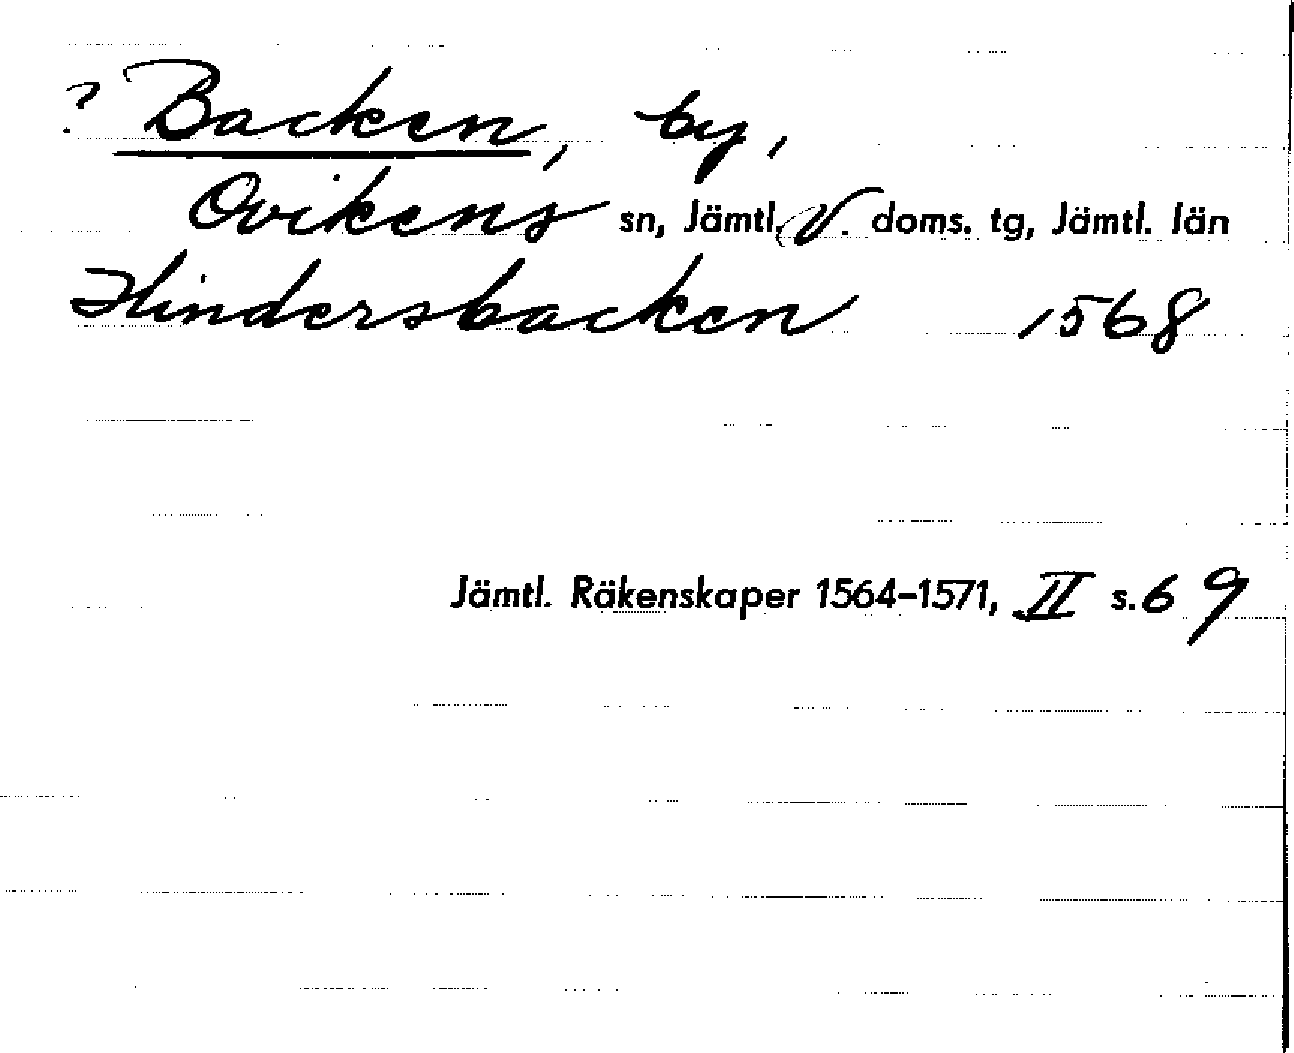 ? Backen, by,
Ovikens sn, Jämtl. V. doms. tg, Jämtl. län
Hindersbacken 1568
Jämtl. Räkenskaper 1564-1571, II s. 69